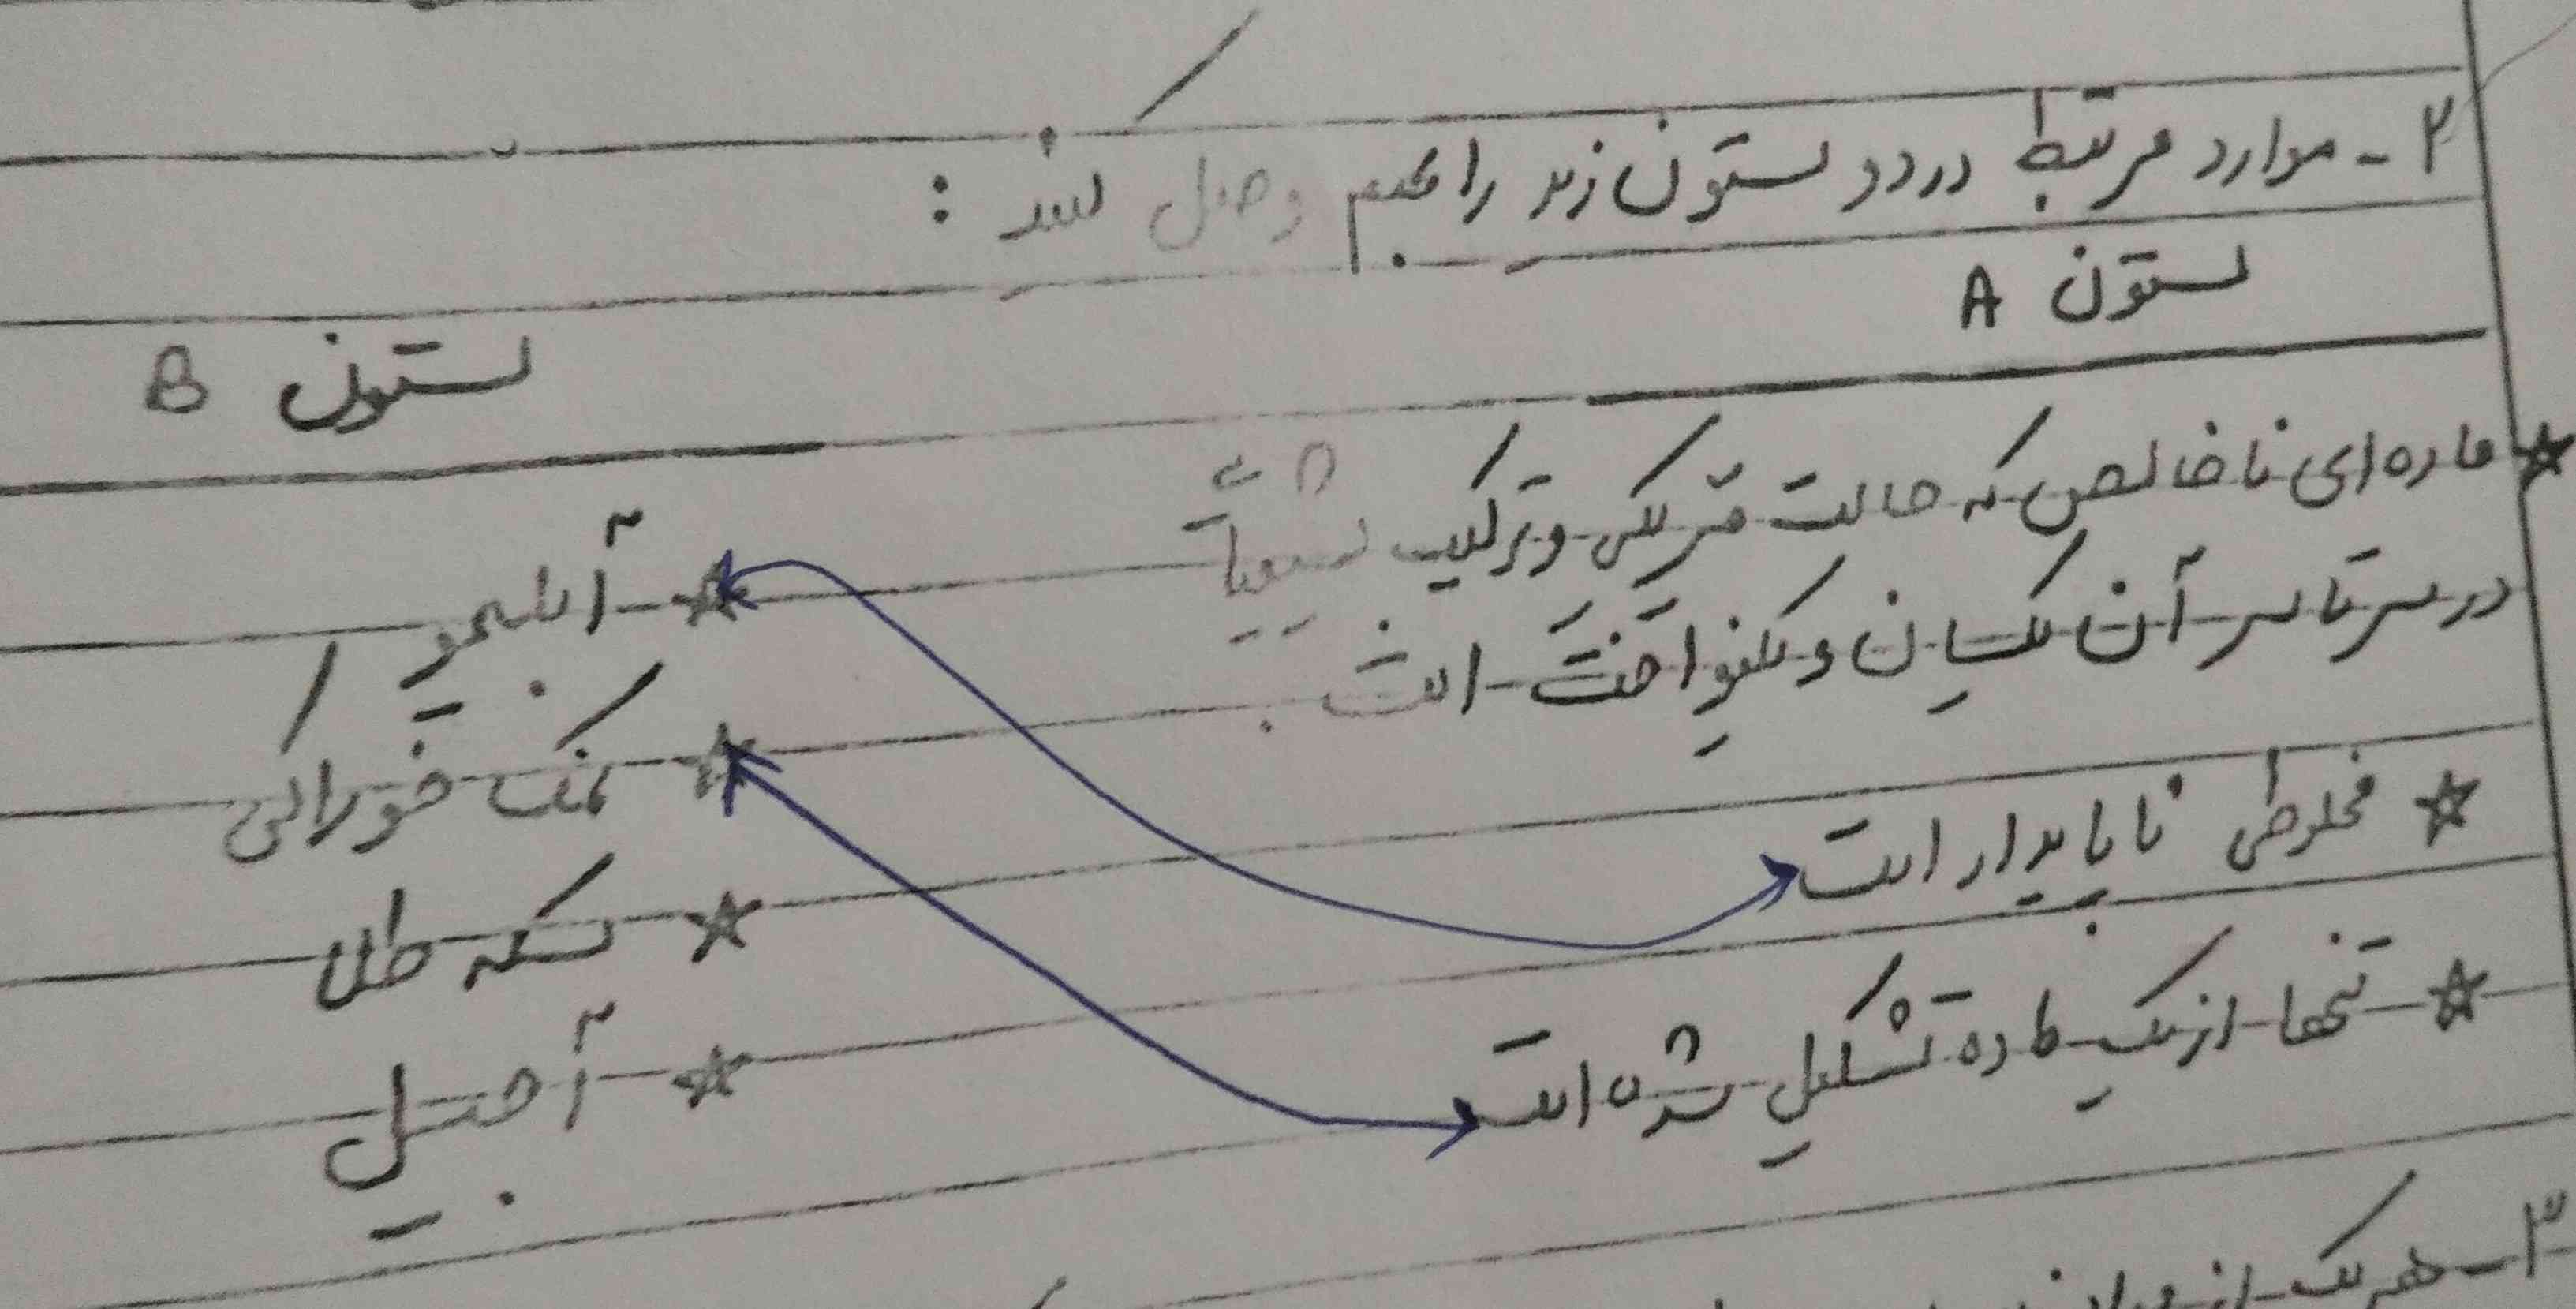 ۲ - موارد مرتبط در دو ستون زیر را بهم وصل کنید :
ستون A
ستون B
ماده ای ناخالص که حالت فیزیکی و ترکیب شیمیایی
در سرتاسر آن یکسان و یکنواخت است .
مخلوطی ناپایدار است
تنها از یک ماده تشکیل شده است
آبلیمو
نمک خوراکی
سکه طلا
آجیل
۳ - هر یک از